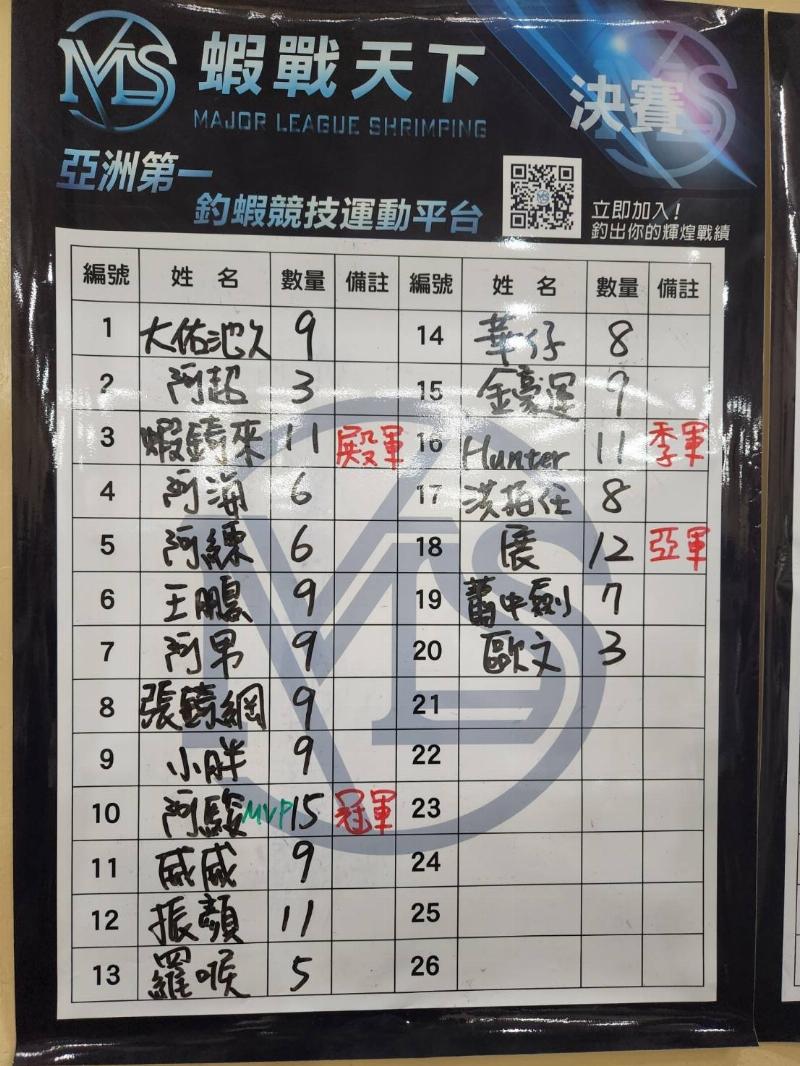 MLS 蝦戰天下
MAJOR LEAGUE SHRIMPING
決賽
亞洲第一
釣蝦競技運動平台
立即加入!
釣出你的輝煌戰績
編號 姓名 數量 備註 編號 姓名 數量 備註
1 大佑池久 9 14 華仔 8
2 阿超 3 15 金豪運 9
3 蝦錡來 11 殿軍 16 Hunter 11 季軍
4 阿海 6 17 洪拓任 8
5 阿練 6 18 展 12 亞軍
6 王鵬 9 19 舊中劍 7
7 阿男 9 20 歐文 3
8 張錡網 9 21
9 小胖 9 22
10 阿駿 MVP 15 冠軍 23
11 威威 9 24
12 振顏 11 25
13 羅喉 5 26